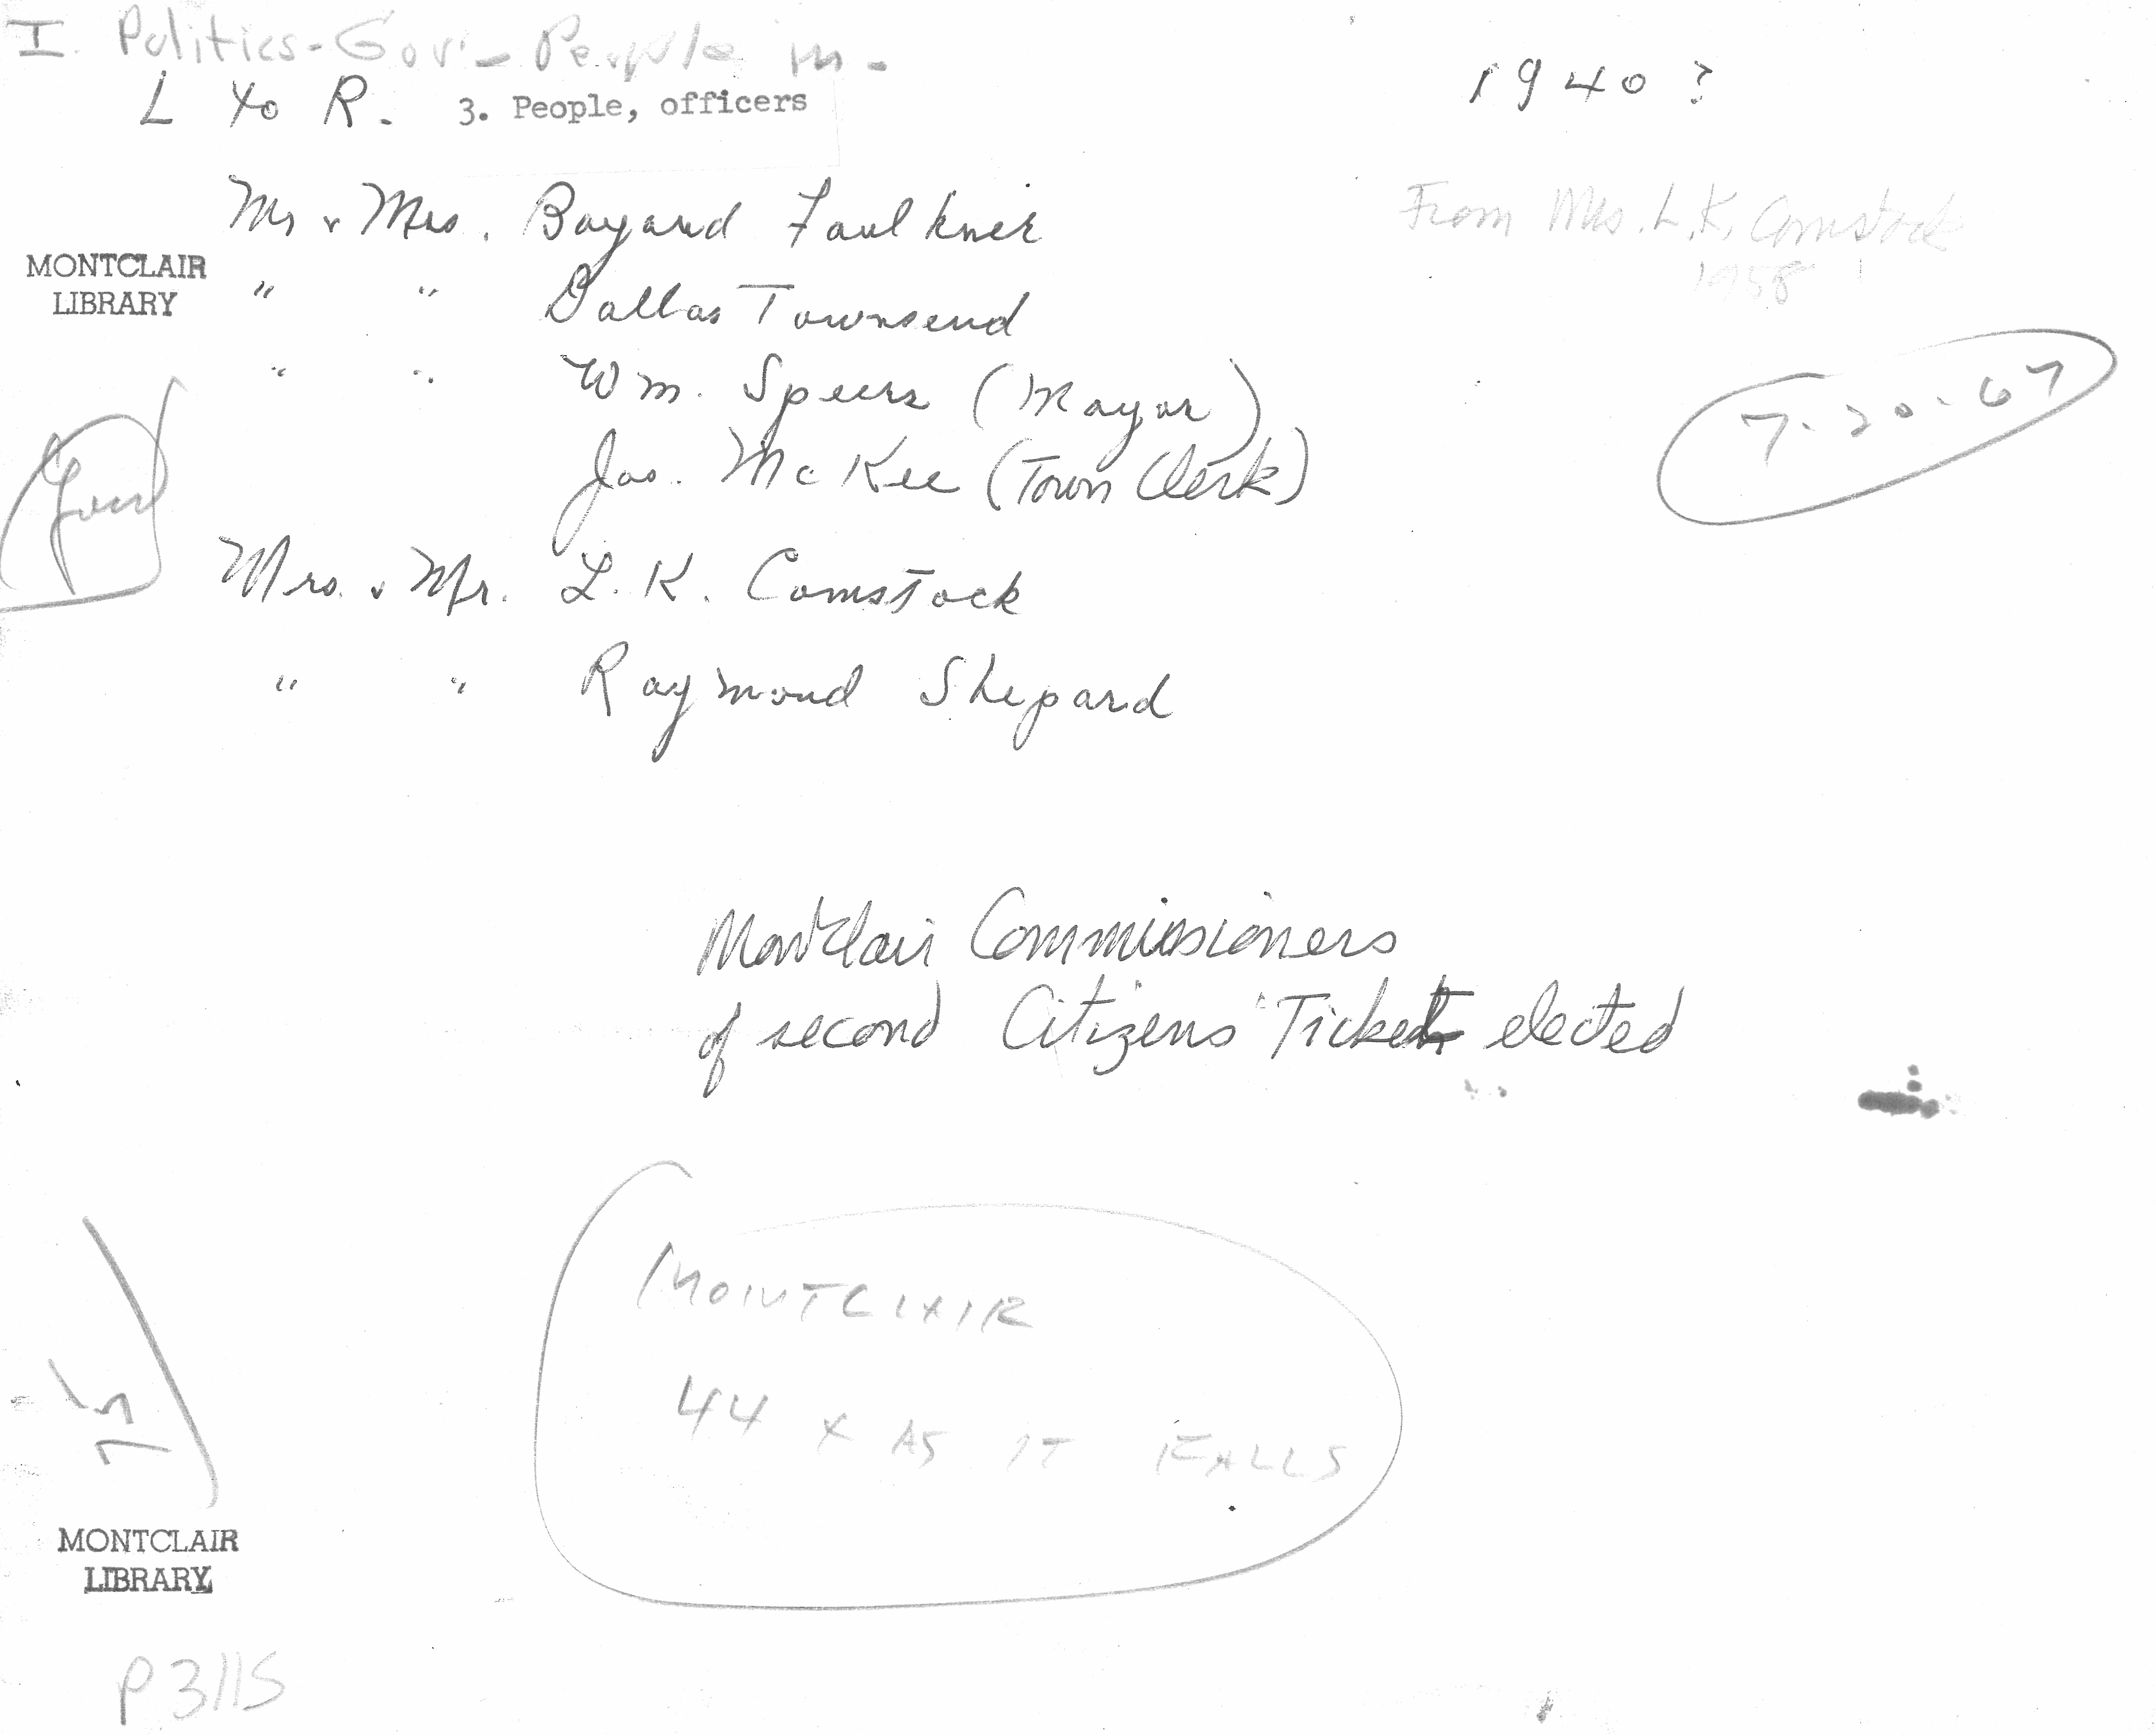 I. Politics-Gov.- People in-
L to R. 3. People, officers
1940?
Mr & Mrs. Bayard Faulkner
From Mrs. L.K. Comstock
1958
MONTCLAIR
LIBRARY
" " Dallas Townsend
" " Wm. Speers (Mayor)
7-20-67
Jas. McKee (Town Clerk)
Mrs. & Mr. L. K. Comstock
" " Raymond Shepard
Montclair Commissioners
of second Citizens Ticket elected
MONTCLAIR
44 X AS IT FALLS
MONTCLAIR
LIBRARY
P3115